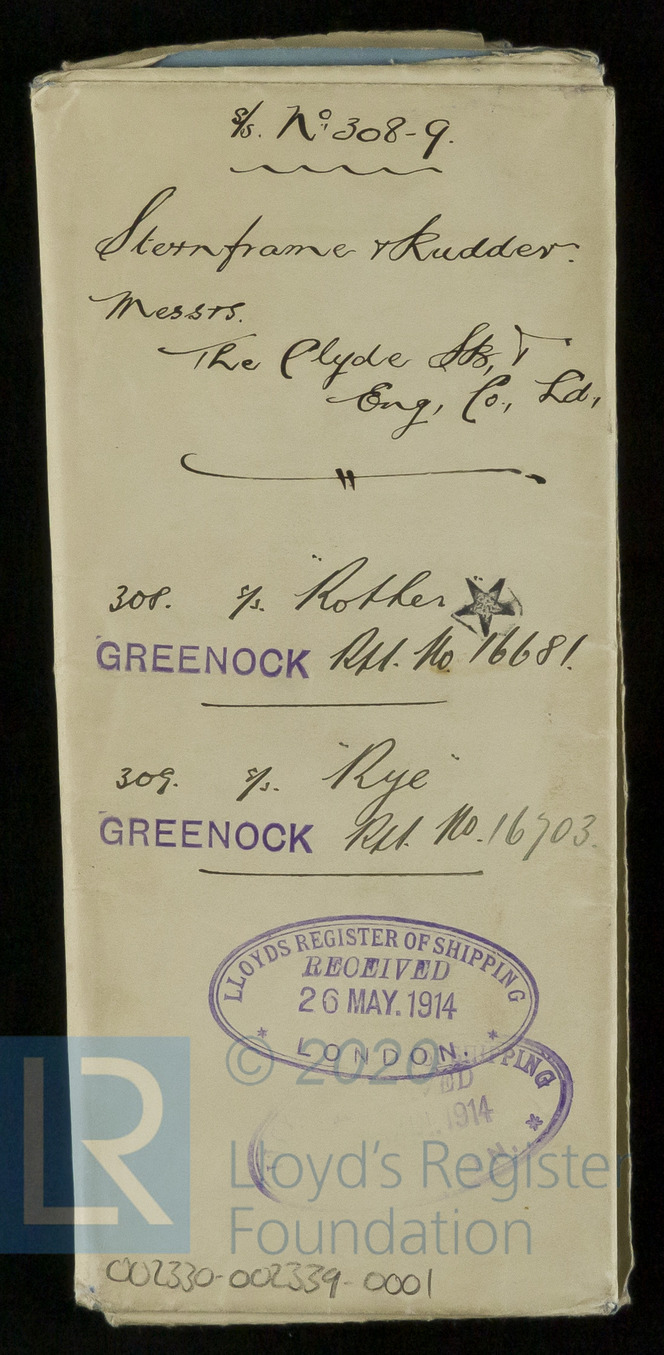 s/s. No. 308-9.
Sternframe & Rudder.
Messrs.
The Clyde Sb, &
Eng, Co., Ld,
308. s/s. "Rother"
GREENOCK Rpt. No. 16681.
309. s/s. "Rye"
GREENOCK Rpt. No. 16703.
LLOYDS REGISTER OF SHIPPING
RECEIVED
26 MAY. 1914
LONDON.
PPING
ED
1914
© 2020
LR
Lloyd's Register
Foundation
002330-002339-0001